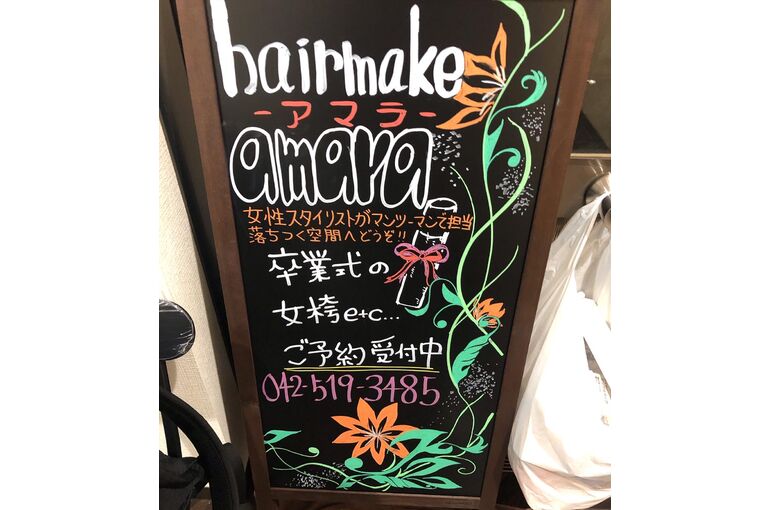 hairmake
-アマラ-
amara
女性スタイリストがマンツーマンで担当
落ちつく空間へどうぞ!!
卒業式の
女袴e+c...
ご予約受付中
042-519-3485